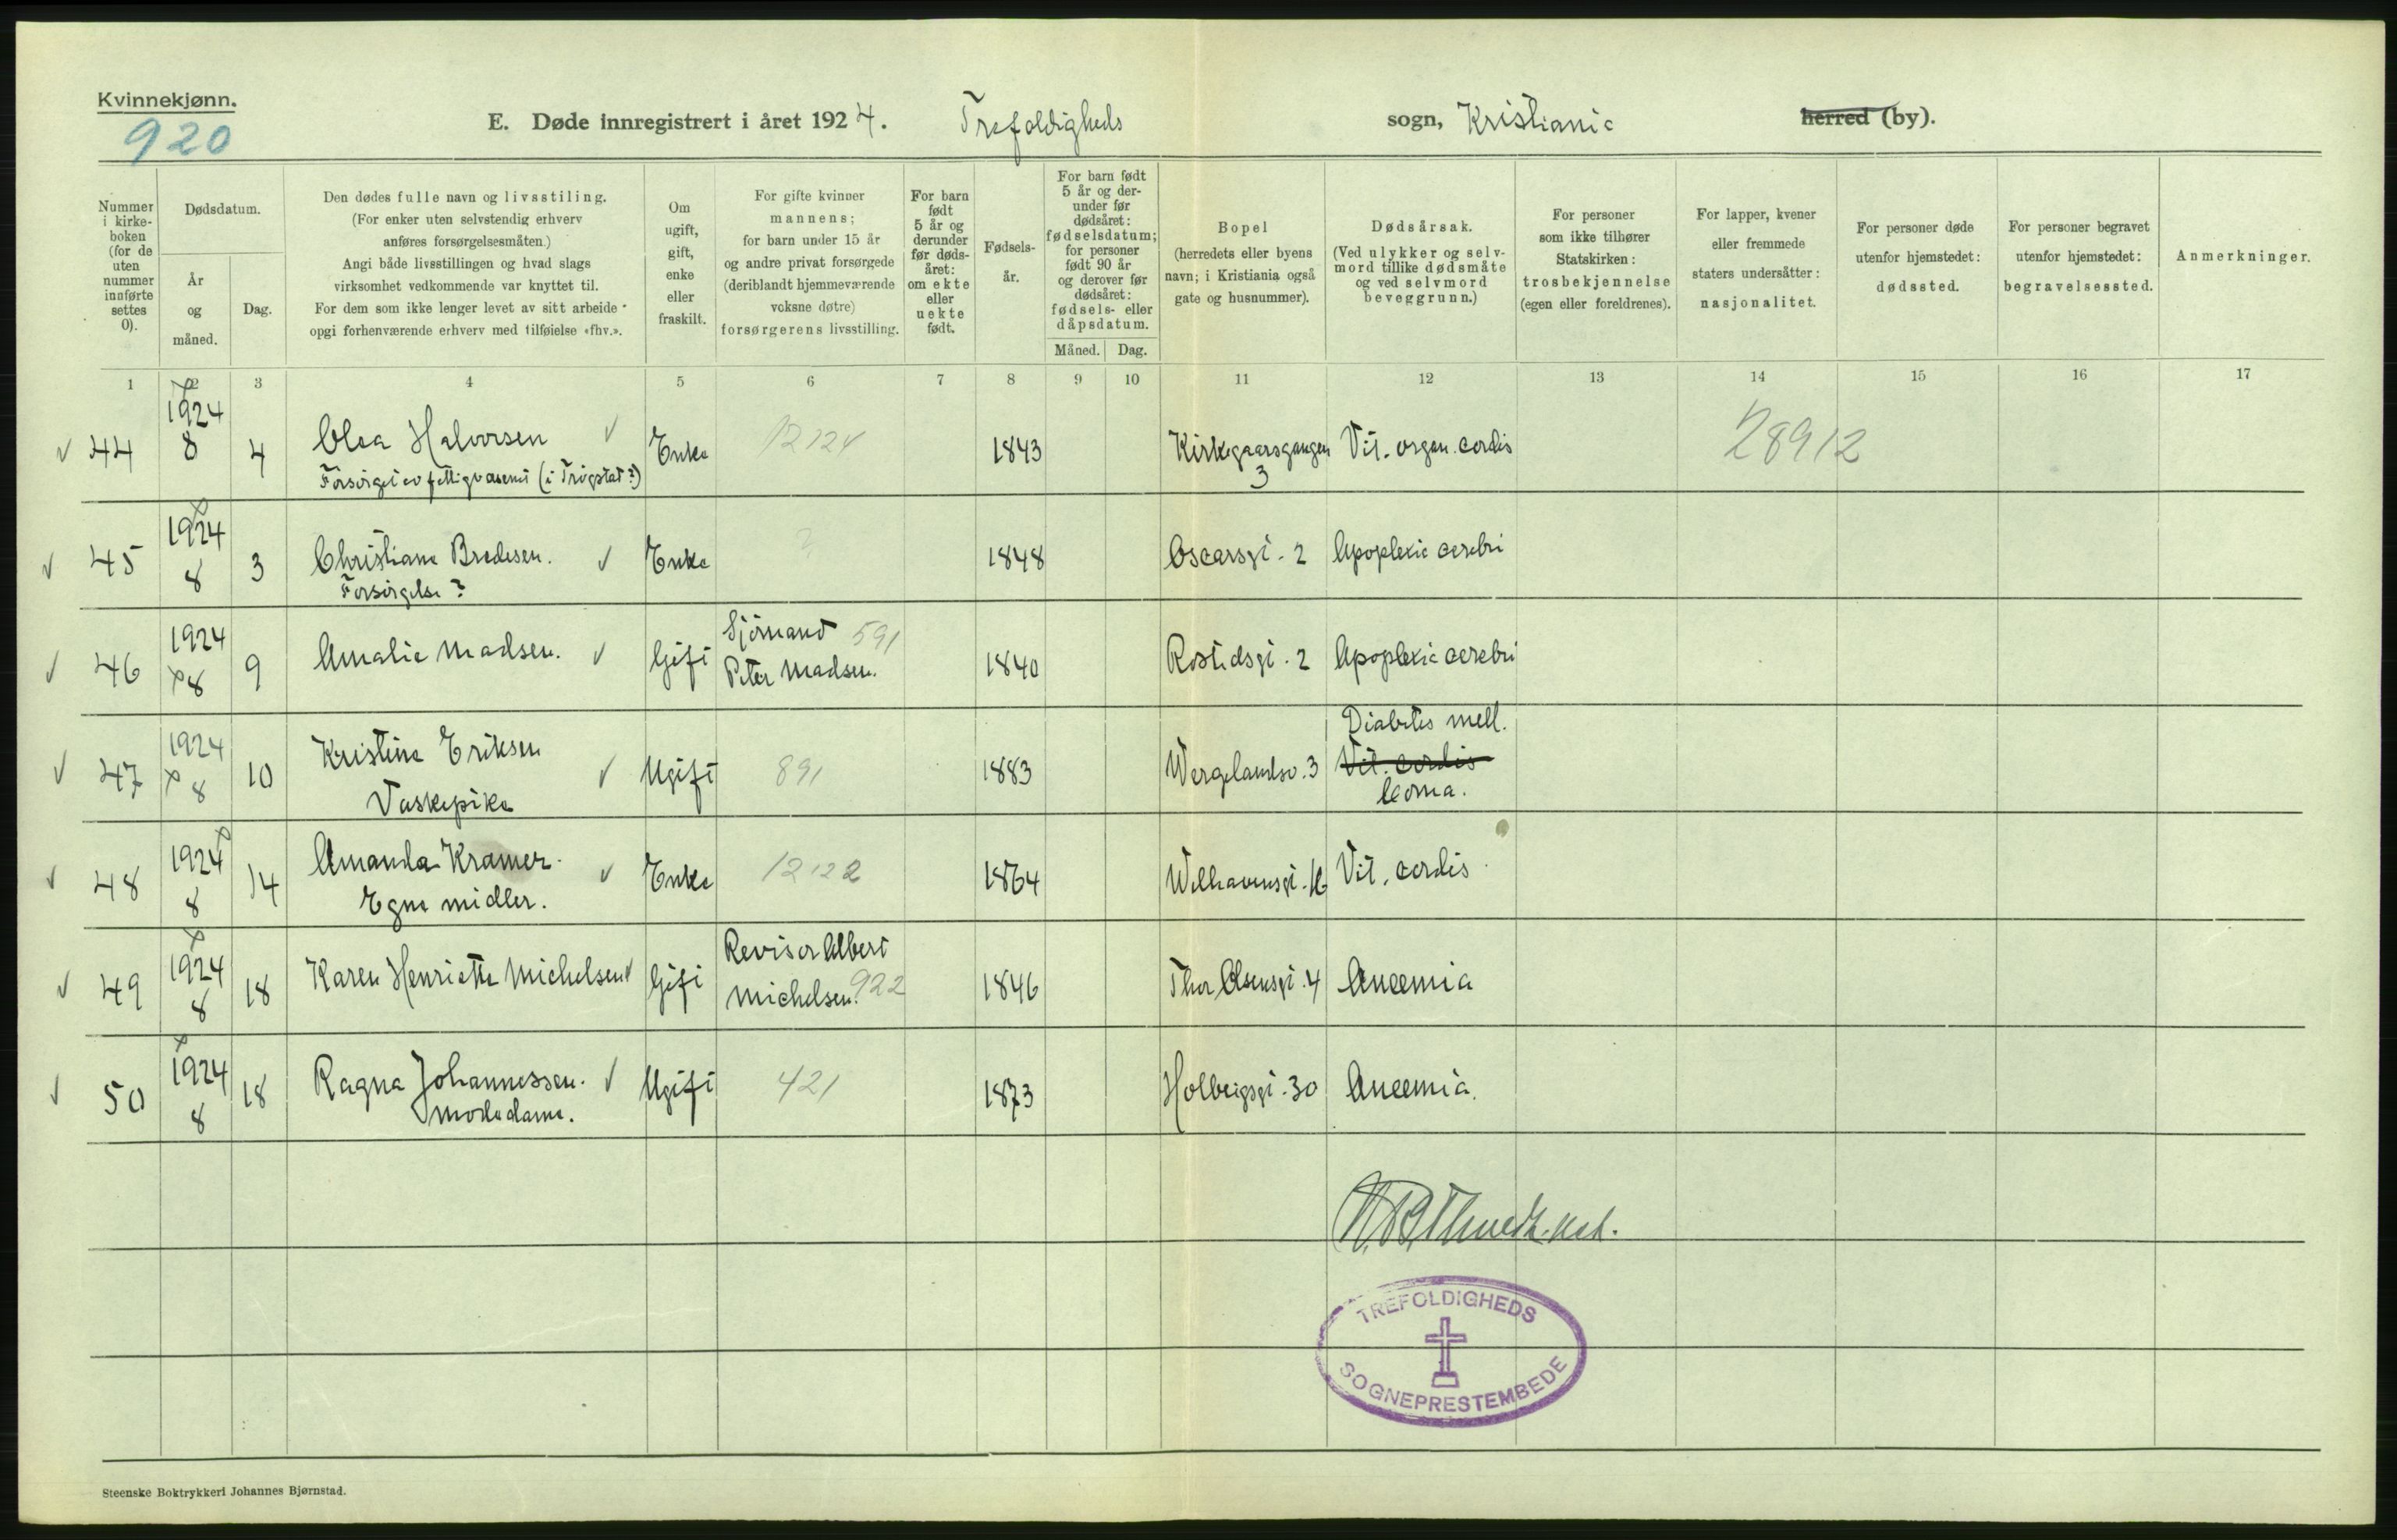 Kvinnekjønn.
920
E. Døde innregistrert i året 1924. Trefoldigheds sogn, Kristiania herred (by).
Nummer i kirke- boken (for de uten nummer innførte settes 0).
Dødsdatum.
År og måned.
Dag.
Den dødes fulle navn og livsstiling.
(For enker uten selvstendig erhverv
anføres forsørgelsesmåten.)
Angi både livsstillingen og hvad slags
virksomhet vedkommende var knyttet til.
For dem som ikke lenger levet av sitt arbeide
opgi forhenværende erhverv med tilføielse «fhv.».
Om ugift, gift, enke eller fraskilt.
For gifte kvinner
mannens;
for barn under 15 år
og andre privat forsørgede
(deriblandt hjemmeværende
voksne døtre)
forsørgerens livsstilling.
For barn født 5 år og derunder før døds- året: om ekte eller uekte født.
Fødsels- år.
For barn født 5 år og der- under før dødsåret: fødselsdatum; for personer født 90 år og derover før dødsåret: fødsels- eller dåpsdatum.
Måned. Dag.
Bopel
(herredets eller byens
navn; i Kristiania også
gate og husnummer).
Dødsårsak.
(Ved ulykker og selv-
mord tillike dødsmåte
og ved selvmord
beveggrunn.)
For personer
som ikke tilhører
Statskirken:
trosbekjennelse
(egen eller foreldrenes).
For lapper, kvener
eller fremmede
staters undersåtter:
nasjonalitet.
For personer døde
utenfor hjemstedet:
dødssted.
For personer begravet
utenfor hjemstedet:
begravelsessted.
Anmerkninger.
1 2 3 4 5 6 7 8 9 10 11 12 13 14 15 16 17
44 1924 8 4 Olea Halvorsen Enke 12124 1843 Kirkegaarsgangen 3 Vit. organ. cordis 28912
Forsørget av fattigvæsenet (i Trøgstad?)
45 1924 8 3 Christiane Bredesen. Enke ? 1848 Oscarsgt. 2 Apoplexia cerebri
Forsørgelse?
46 1924 8 9 Amalie Madsen. Gift Sjømand 591 Peter Madsen. 1840 Rostedsgt. 2 Apoplexia cerebri
47 1924 8 10 Kristine Eriksen Ugift 891 1883 Wergelandsv. 3 Diabetes mell.
Vaskepike Vit. cordis
Coma.
48 1924 8 14 Amanda Kramer. Enke 12122 1864 Welhavensgt. 16 Vit. cordis
Egne midler.
49 1924 8 18 Karen Henriette Michelsen Gift Revisor Albert Michelsen. 922 1846 Thor Olsensgt. 4 Anæmia
50 1924 8 18 Ragna Johannessen. Ugift 421 1873 Holbergsgt. 30 Anæmia.
Modedame.
TREFOLDIGHEDS
SOGNEPRESTEMBEDE
Steenske Boktrykkeri Johannes Bjørnstad.